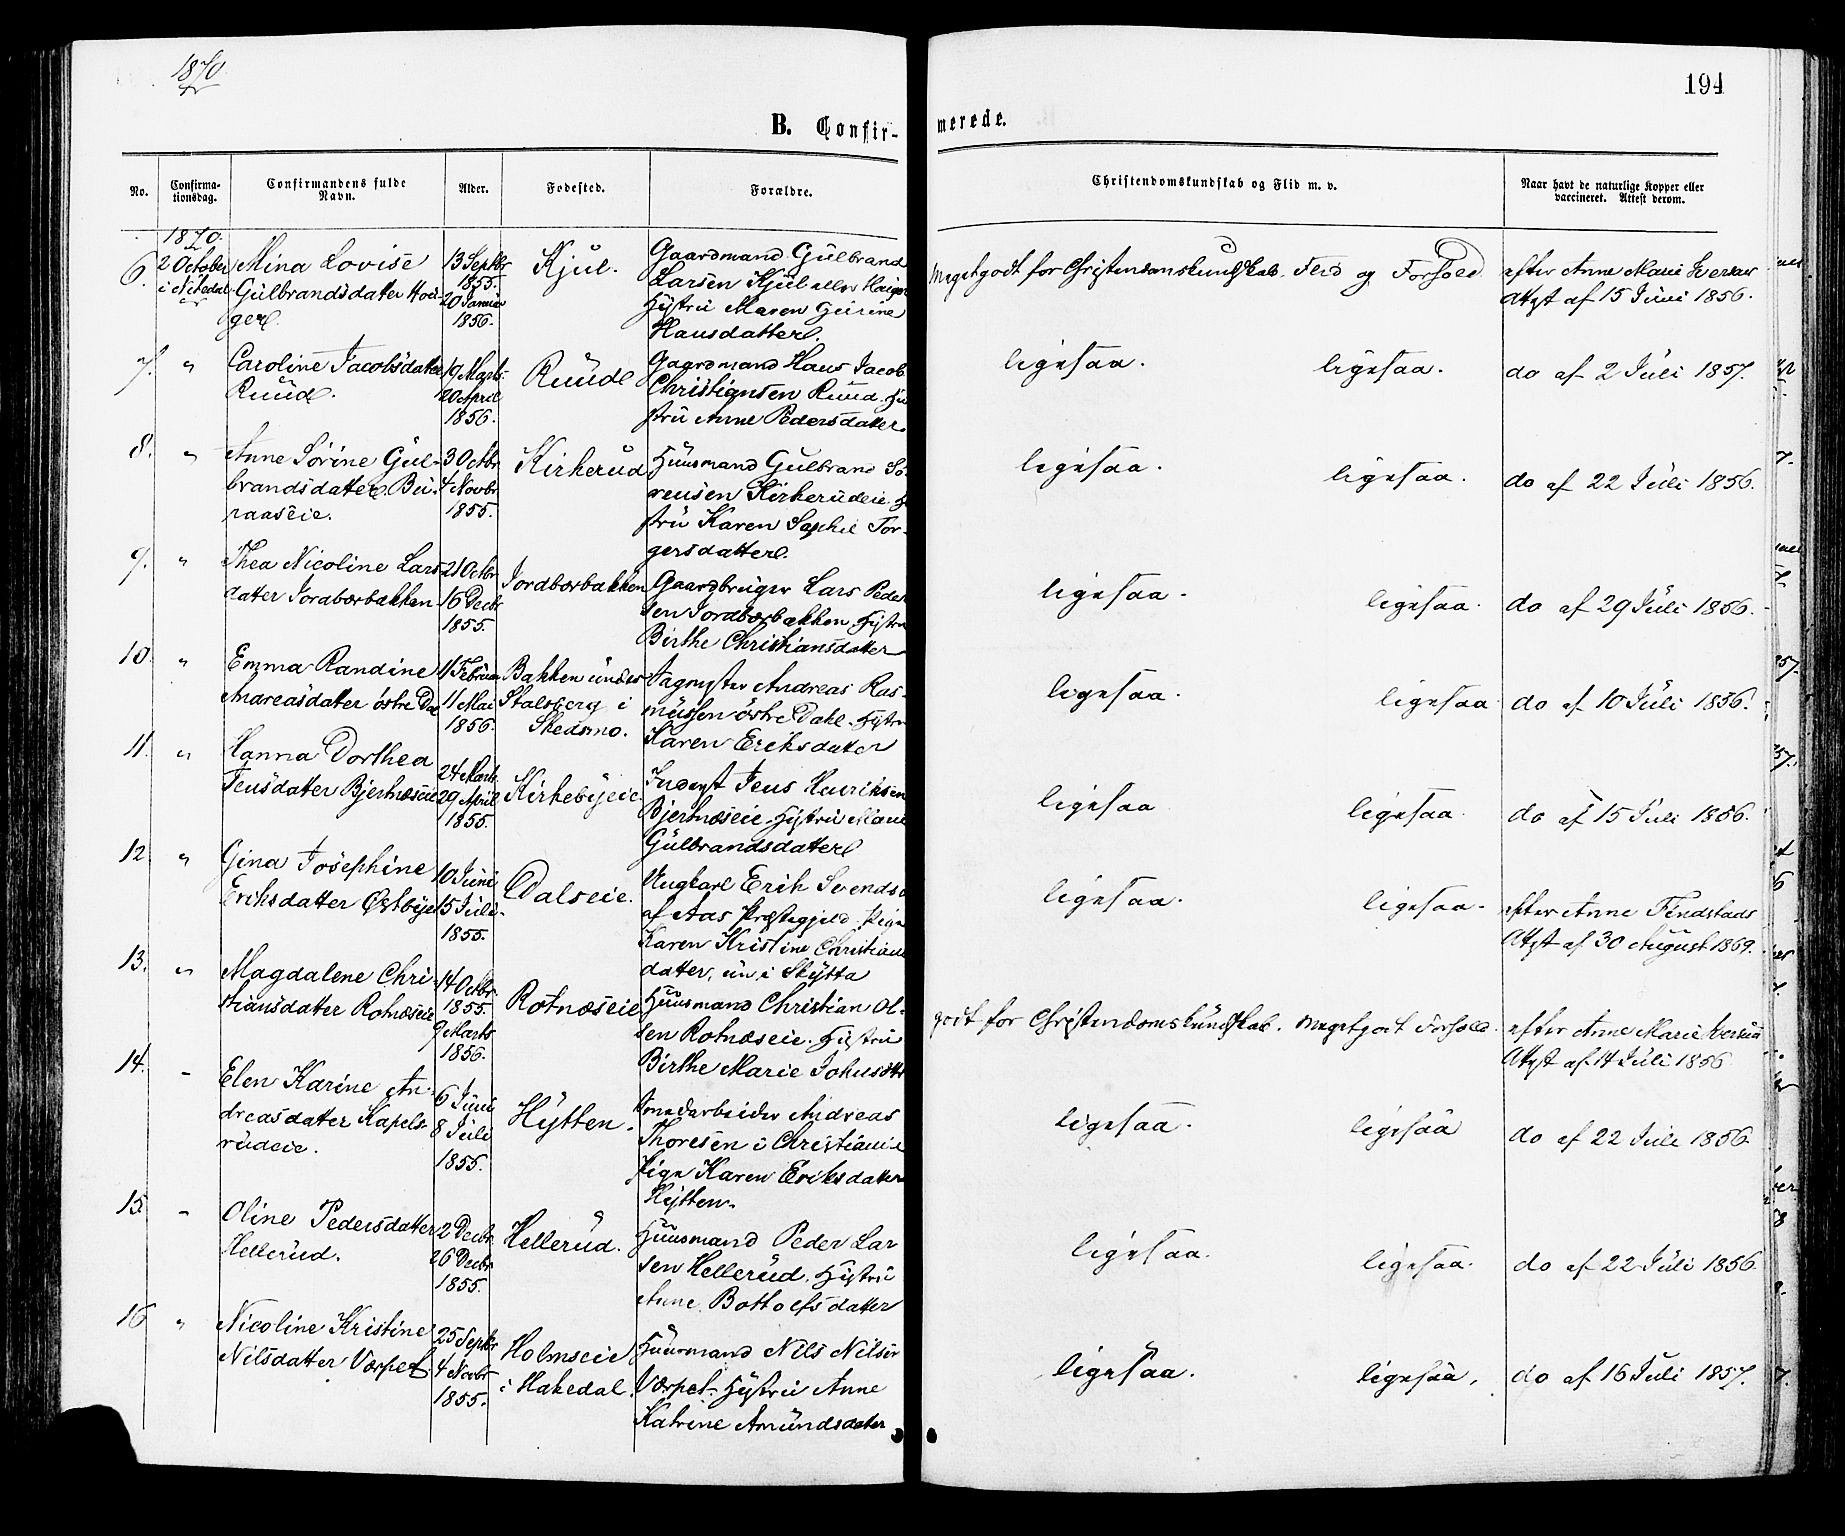 1870
194
B. Confir-
merede.
No.
Confirma-
tionsdag.
Confirmandens fulde
Navn.
Alder.
Fødested.
Forældre.
Christendomskundskab og Flid m. v.
Naar havt de naturlige Kopper eller
vaccineret. Attest derom.
1870.
6.
2 October
i Nitedal
Mina Lovise
Gülbrandsdatter
13 Septbr
1855.
20 Januar
1856.
Kjül.
Gaardmand Gülbrand
Larsen Kjül eller
Hüstrü Maren
Hansdatter.
Megetgodt for Christendomskundskab. Flid og Forhold
efter Anne Marie
Attest af 15 Juni 1856.
7. "
Caroline Jacobsdatter
Ruüd.
19 Marts
20 April
1856.
Ruüd
Gaardmand Hans Jacob
Christiansen Ruud. Hü
strü Anne Pedersdatter.
ligesaa. ligesaa.
do af 2 Jüli 1857.
8. "
Anne Sørine Gül-
brandsdatter
raaseie.
3 Octbr
4 Novbr
1855.
Kirkerüd
Hüüsmand Gülbrand Sø
rensen Kirkerüdeie. H
strü Karen Sophie Tor-
gersdatter.
ligesaa. ligesaa.
do af 22 Jüli 1856.
9. "
Thea Nicoline Lars
datter Jordbærbakken
21 Octbr
16 Decbr
1855.
Jordbærbakken
Gaardbrüger Lars Peder
sen Jordbærbakken. Hüstrü
Birthe Christiansdatter
ligesaa. ligesaa.
do af 29 Jüli 1856.
10. "
Emma Randine
Andreasdatter østre Da
11 Februar
11 Mai
1856.
Bakken ünder
Stalsberg i
Skedsmo.
Andreas Ras-
müssen østre Dahl. Hüstrü
Karen Eriksdatter
ligesaa. ligesaa
do af 10 Jüli 1856.
11. "
Hanna Dorthea
Jensdatter Bjertnæseie
24 Marts
29 April
1855.
Kirkebyeie.
Inderst Jens Henriksen
Bjertnæseie. Hüstrü
Gülbrandsdatter
ligesaa ligesaa.
do af 15 Jüli 1856.
12 "
Gina Josephine
Eriksdatter Østbye
10 Jüni
15 Jüli
1855.
Dalseie.
Ungkarl Erik Svendse
af Aas Præstegjeld. Pige
Karen Kristine Christians
datter, ün. i Skytta
ligesaa. ligesaa.
efter Anne Findstads
Attest af 30 Augüst 1869.
13. "
Magdalene Chri-
stiansdatter Rotnæseie
14 Octbr
1855.
9 Marts
1856.
Rotnæseie
Hüüsmand Christian Ol-
sen Rotnæseie. Hüstrü
Birthe Marie Johnsdtr
godt for Christendomskündskab. Megetgodt Forhold.
efter Anne Marie
Attest af 14 Jüli 1856
14. "
Elen Karine An-
dreasdatter Kapels-
rüdeie.
6 Jüni
8 Jüli
1855.
Hytten.
Andreas
Thoresen i Christiania
Pige Karen Eriksdatter
Hytten.
ligesaa. ligesaa
do af 22 Jüli 1856.
15. "
Oline Pedersdatter
Hellerüd.
2 Decbr
26 Decbr
1855.
Hellerüd.
Hüüsmand Peder Lar
sen Hellerüd. Hüstrü
Anne Bottolfsdatter
ligesaa. ligesaa.
do af 22 Jüli 1856
16 "
Nicoline Kristine
Nilsdatter Værpet
25 Septbr
4 Novbr
1855.
Holmseie
i Hakedal.
Hüüsmand Nils Nilsen
Værpet. Hüstrü Anne
Katrine Amündsdatter
ligesaa. ligesaa.
do af 16 Jüli 1857.